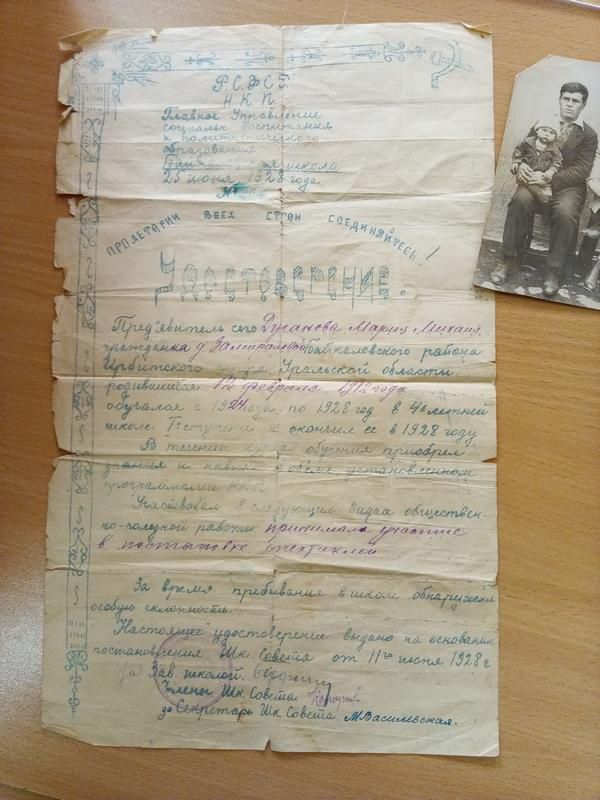 Р.С.Ф.С.Р.
Н.К.П.
Главное Управление
социальн. воспитания
и политехнического
образования.
Байкаловская школа
25 июня 1928 года
№
ПРОЛЕТАРИИ ВСЕХ СТРАН СОЕДИНЯЙТЕСЬ!
УДОСТОВЕРЕНИЕ.
Пред'явитель сего Дуганова Мария Михаил.
гражданка д. Байкаловского района
Ирбитского Уральской области.
родившийся 12 февраля 1912 года
обучался с 1924 года, по 1928 год в 4х летней
школе I ступени и окончил ее в 1928 году
В течении курса обучения приобрел
знания и навыки в объеме установленном
программами НКП
Участвовал в следующих видах обществен-
но-полезной работы принимала участие
в постановке спектаклей
За время пребывания в школе обнаружил
особую склонность.
Настоящее удостоверение выдано на основании
постановления Шк. Совета от 11го июня 1928 г
Зав. школой.
Члены Шк. Совета.
за Секретарь Шк. Совета. М. Василевская.